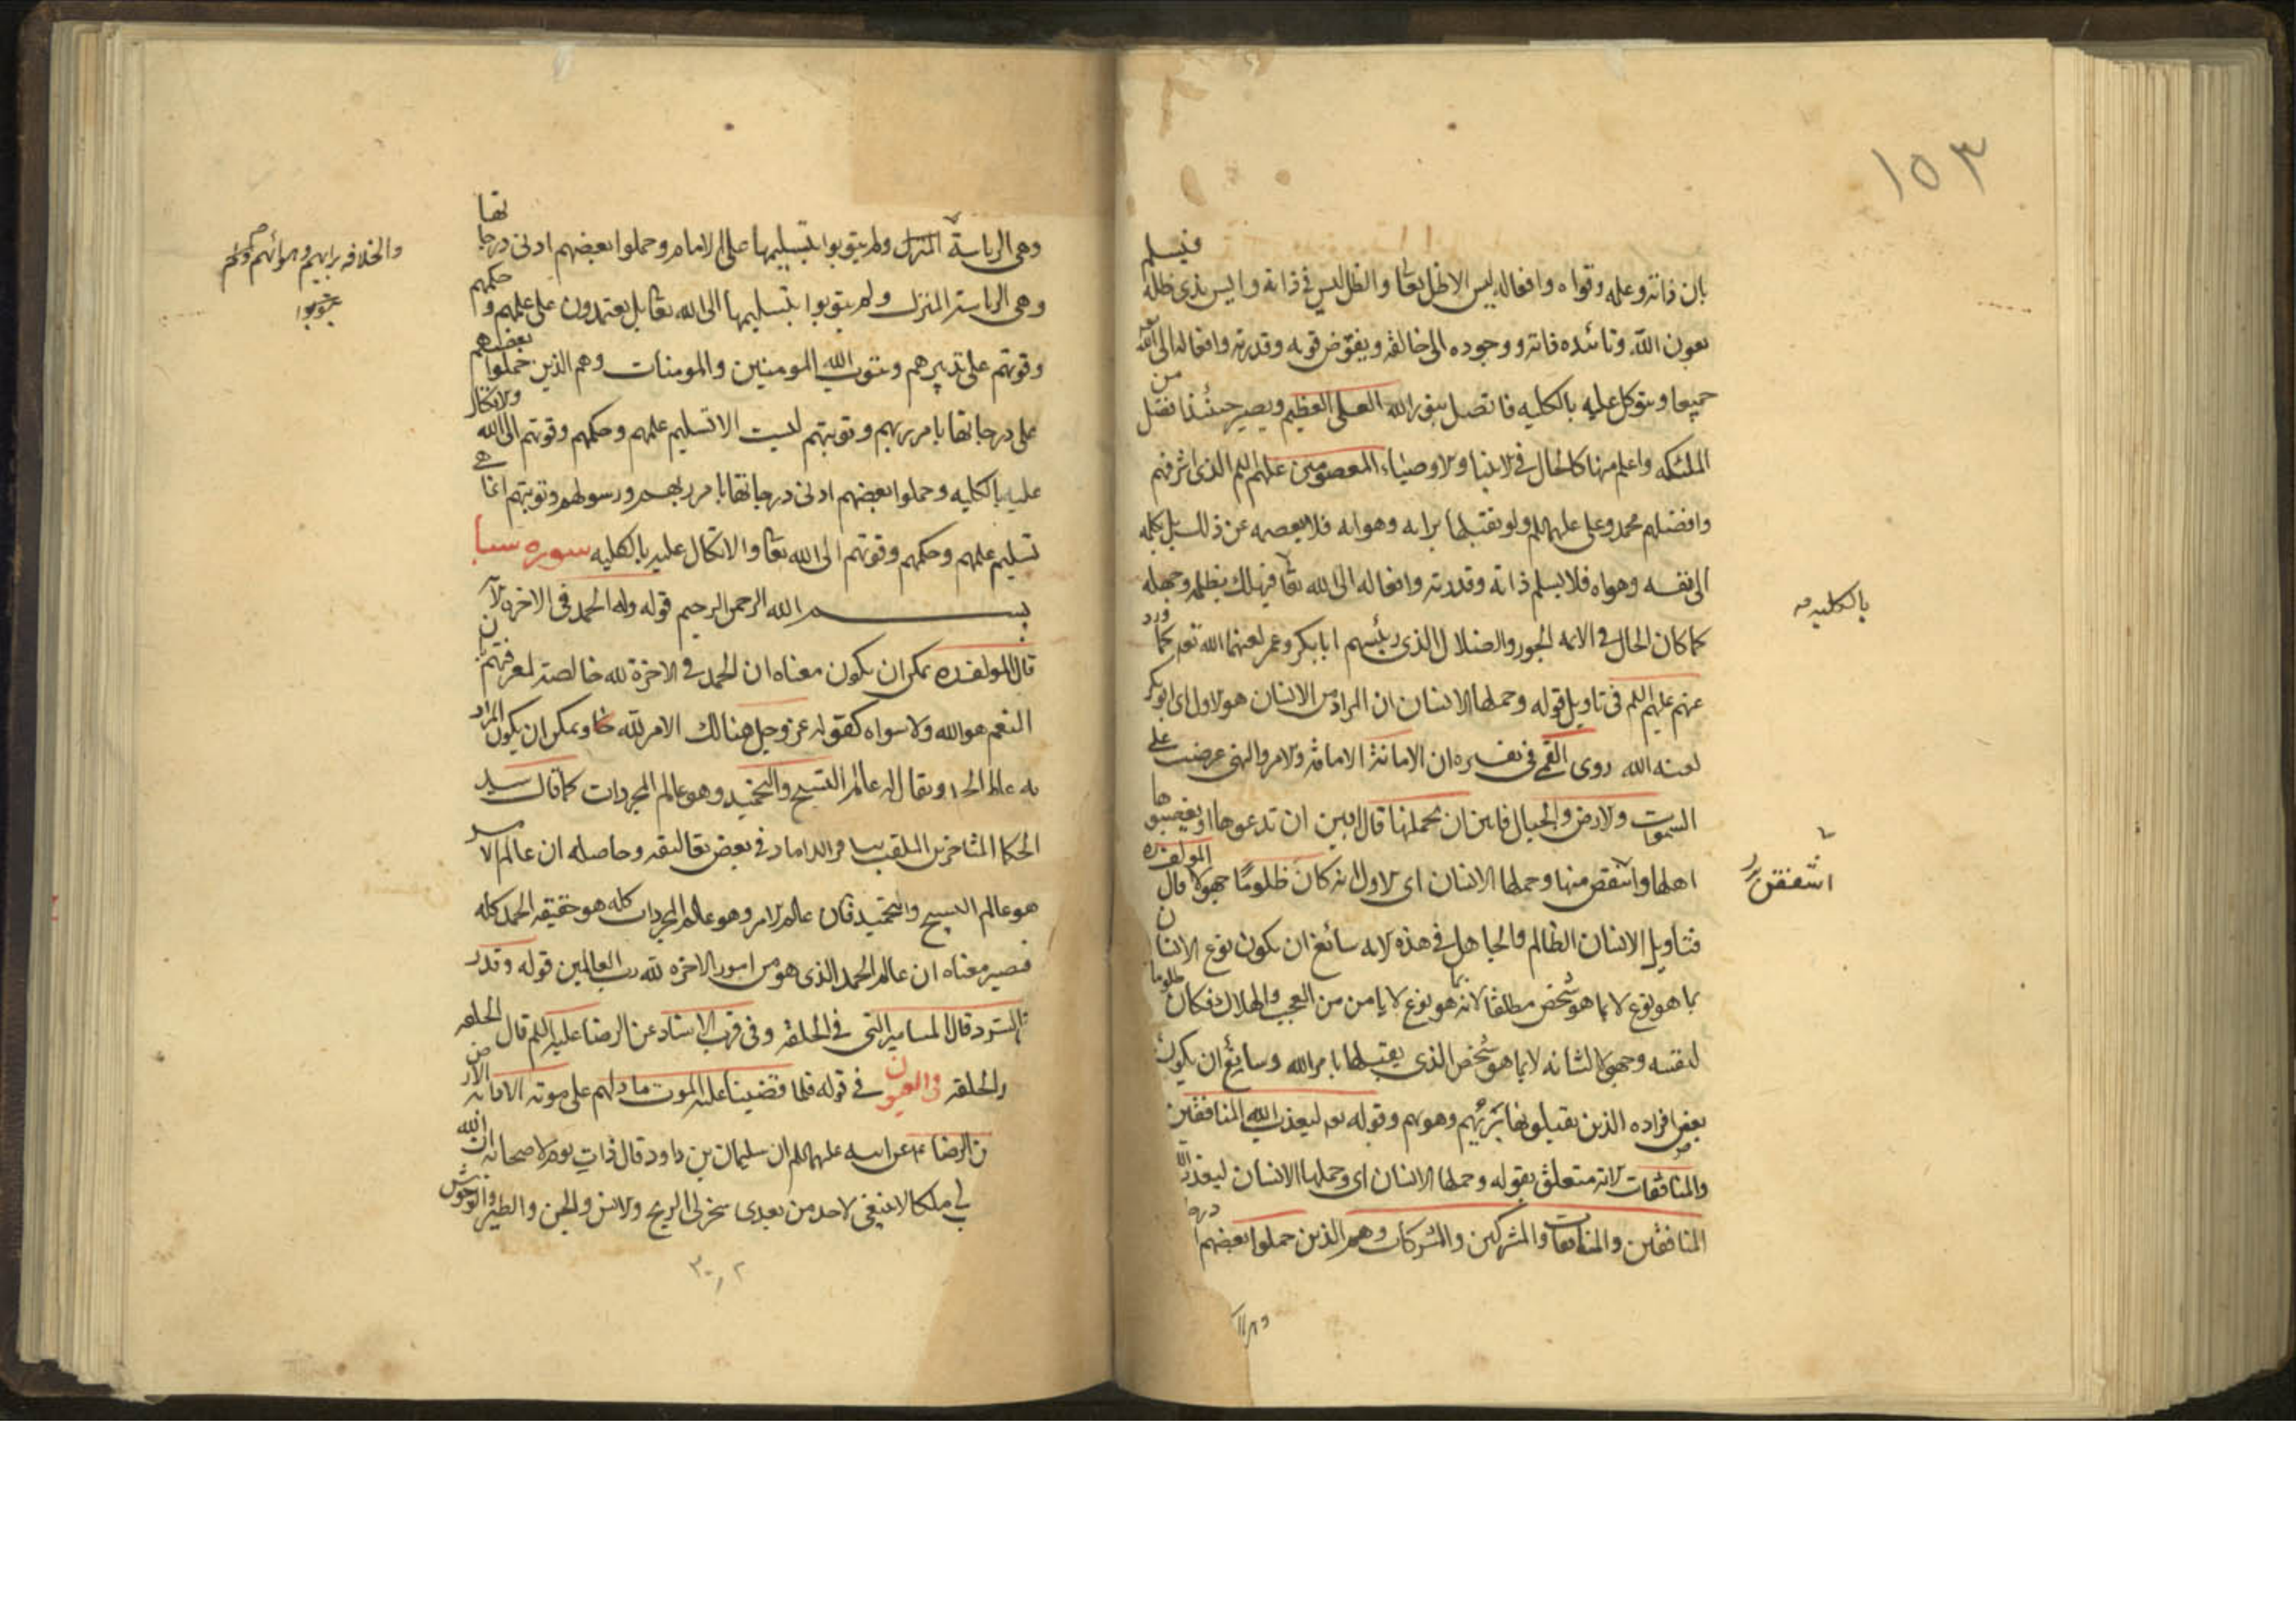 ١٥٣
بان ذاته وعلمه وقواه وافعاله ليس الا ظل الله تعا والظل ليس فى ذاته وليس بذى ظله فيسلم
بعون الله وتائده ذاته ووجوده الى خالقه ويفوض قوته وقدرته وافعاله الى الله تعه
جميعا ويتوكل عليه بالكليه فاتصل بنور الله العلى العظيم ويصير حينئذ افضل من
الملئكه واعلم منها كالحال فى الانبيا والاوصياء المعصومين عليهم السلم الذى اشرفهم
وافضلهم محمد وعلى عليهما السلم ولو تقبلها برايه وهوايه فلا يعصمه عن ذلك بل يكله
الى نفسه وهواه فلا يسلم ذاته وقدرته وافعاله الى الله تعا فيهلك بظلمه وجهله
بالكليه صح
كما كان الحال فى الائمه الجور والضلال الذى رئيسهم ابابكر وعمر لعنهما الله تعه كما ورد
عنهم عليهم السلم فى تاويل قوله وحملها الانسان ان المراد من الانسان هو الاول اى ابوبكر
لعنه الله روى القمى فى تفسيره ان الامانة الامامة والامر والنهى عرضت على
السموات والارض والجبال فابين ان يحملنها قال ابين ان تدعوها او يغصبوها
اهلها واشفقن منها وحملها الانسان اى الاول انه كان ظلوما جهولا قال المولف ره
اشفقن
فتاويل الانسان الظالم والجاهل فى هذه الايه سائغ ان يكون نوع الانسان
بما هو نوع لا بما هو شخص مطلقا لانه بما هو نوع لا يامن من العجب والهلاك فكان ظلوما
لنفسه وجهولا لشانه لا بما هو شخص الذى يقبلها بامر الله وسايغ ان يكون
بعض افراده الذين يقبلونها برئيهم وهوىهم وقوله تعه ليعذب الله المنافقين
والمنافقات لانه متعلق بقوله وحملها الانسان اى وحملها الانسان ليعذب الله
المنافقين والمنافقات والمشركين والمشركات وهم الذين حملوا بعضهم
وهى الرياسة المنزل ولم يتوبوا بتسليمها على الى الامام وحملوا بعضهم ادنى درجاتها
والخلافه برايهم وهوائهم ولم يتوبوا
وهى الرياسة المنزل ولم يتوبوا بتسليمها الى الله تعا بل يعتمدون على علمهم وحكمهم
وقوتهم على تدبيرهم ويتوب الله المومنين والمومنات وهم الذين حملوا بعضهم
على درجاتها بامر ربهم وتوبتهم ليست الا تسليم علمهم وحكمهم وقوتهم الى الله والاتكال
عليه بالكليه وحملوا بعضهم ادنى درجاتها بامر ربهم ورسولهم وتوبتهم انما هى
تسليم علمهم وحكمهم وقوتهم الى الله تعا والاتكال عليه بالكليه سوره سبا
بسم الله الرحمن الرحيم قوله وله الحمد فى الاخره الآيه
قال المولف ره يمكن ان يكون معناه ان الحمد فى الاخرة لله خالصة لمعرفتهم بان
النعم هو الله ولا سواه كقوله عز وجل هنالك الامر لله ويمكن ان يكون المراد
به عالم الحمد ويقال له عالم التسبيح والتحميد وهو عالم المجردات كما قال سيد
الحكما المتاخرين الملقب بباقر الداماد فى بعض تعاليقه وحاصله ان عالم الامر
هو عالم التسبيح والتحميد فان عالم الامر وهو عالم المجردات كله هو حقيقة الحمد كله
فيصير معناه ان عالم الحمد الذى هو من امور الاخره لله رب العالمين قوله وقدر
فى السرد قال المسامير التى فى الحلقه وفى قرب الاسناد عن الرضا عليه السلم قال الحلقه
والحلقه والعيون فى قوله فلما قضينا عليه الموت ما دلهم على موته الا دابة الارض
عن الرضا عن ابيه عليهما السلم ان سليمان بن داود قال ذات يوم لاصحابه ان الله
لى ملكا لا ينبغى لاحد من بعدى سخر لى الريح والانس والجن والطير والوحوش